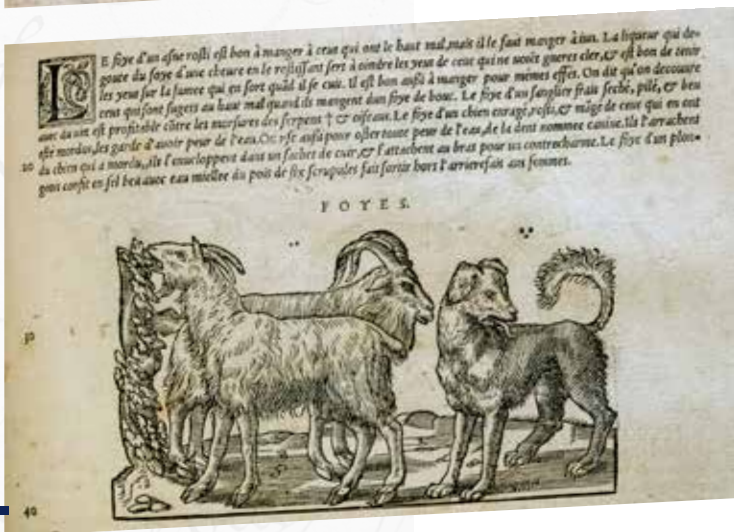 LE foye d'un asne rosti est bon à manger à ceus qui ont le haut mal, mais il le faut manger à iun. La liqueur qui de-
goute du foye d'une cheure en le rostissant sert à oindre les yeus de ceus qui ne voiẽt gueres cler, & est bon de tenir
les yeus sur la fumee qui en sort quãd il se cuit. Il est bon aussi à manger pour mémes effés. On dit qu'on decouure
ceus qui sont sugets au haut mal quand ils mangent d'un foye de bouc. Le foye d'un sanglier frais seché, pilé, & beu
auec du vin est profitable cõtre les morsures des serpens † & oiseaus. Le foye d'un chien enragé, rosti, & mãgé de ceus qui en ont
esté mordus, les garde d'auoir peur de l'eau. On vse aussi pour oster toute peur de l'eau, de la dent nommee canine. Ils l'arrachent
20 du chien qui a mordu, ils l'enueloppent dans un sachet de cuir, & l'attachent au bras pour un contrecharme. Le foye d'un plon-
geon confit en sel beu auec eau miellee du pois de six scrupules fait sortir hors l'arrierefais aus femmes.
FOYES.
30
40